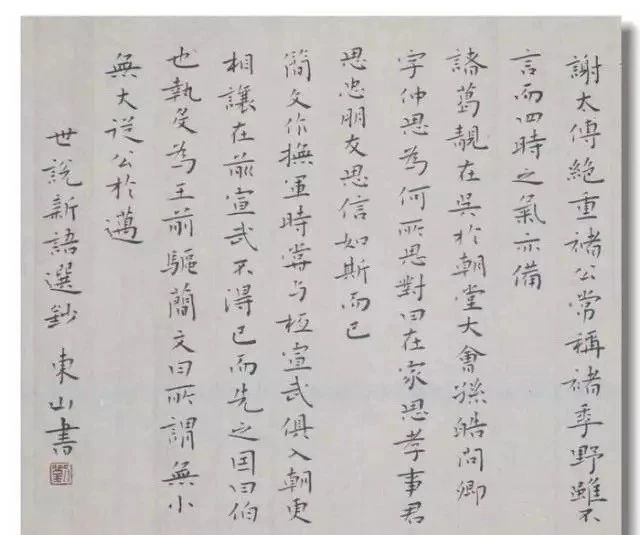 謝太傅絶重褚公常稱褚季野雖不
言而四時之氣亦備
諸葛靚在吳於朝堂大會孫皓問卿
字仲思為何所思對曰在家思孝事君
思忠朋友思信如斯而已
簡文作撫軍時嘗与桓宣武俱入朝更
相讓在前宣武不得已而先之因曰伯
也執殳為王前驅簡文曰所謂無小
無大從公於邁
世說新語選鈔 東山書
劉